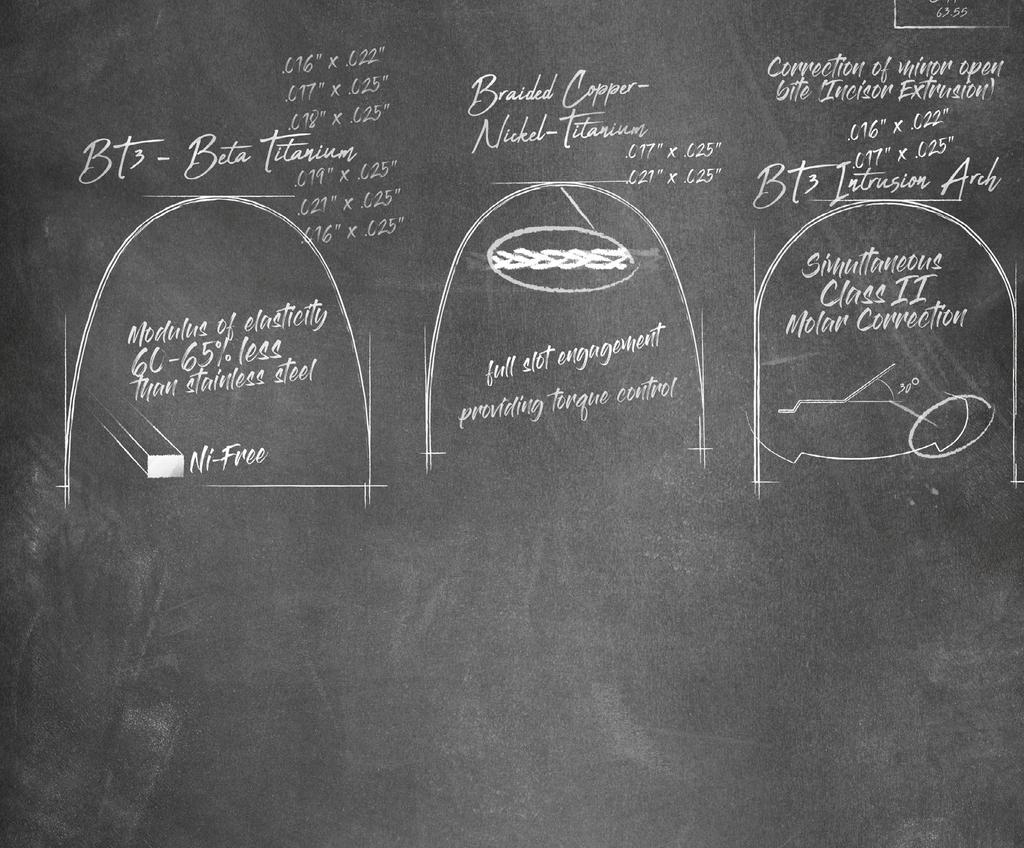 63.55
.016" x .022"
.017" x .025"
.018" x .025"
BT3 - Beta Titanium
.019" x .025"
.021" x .025"
.016" x .025"
Modulus of elasticity
60-65% less
than stainless steel
Ni-Free
Braided Copper-
Nickel-Titanium
.017" x .025"
.021" x .025"
full slot engagement
providing torque control
Correction of minor open
bite (Incisor Extrusion)
.016" x .022"
.017" x .025"
BT3 Intrusion Arch
Simultaneous
Class II
Molar Correction
30°